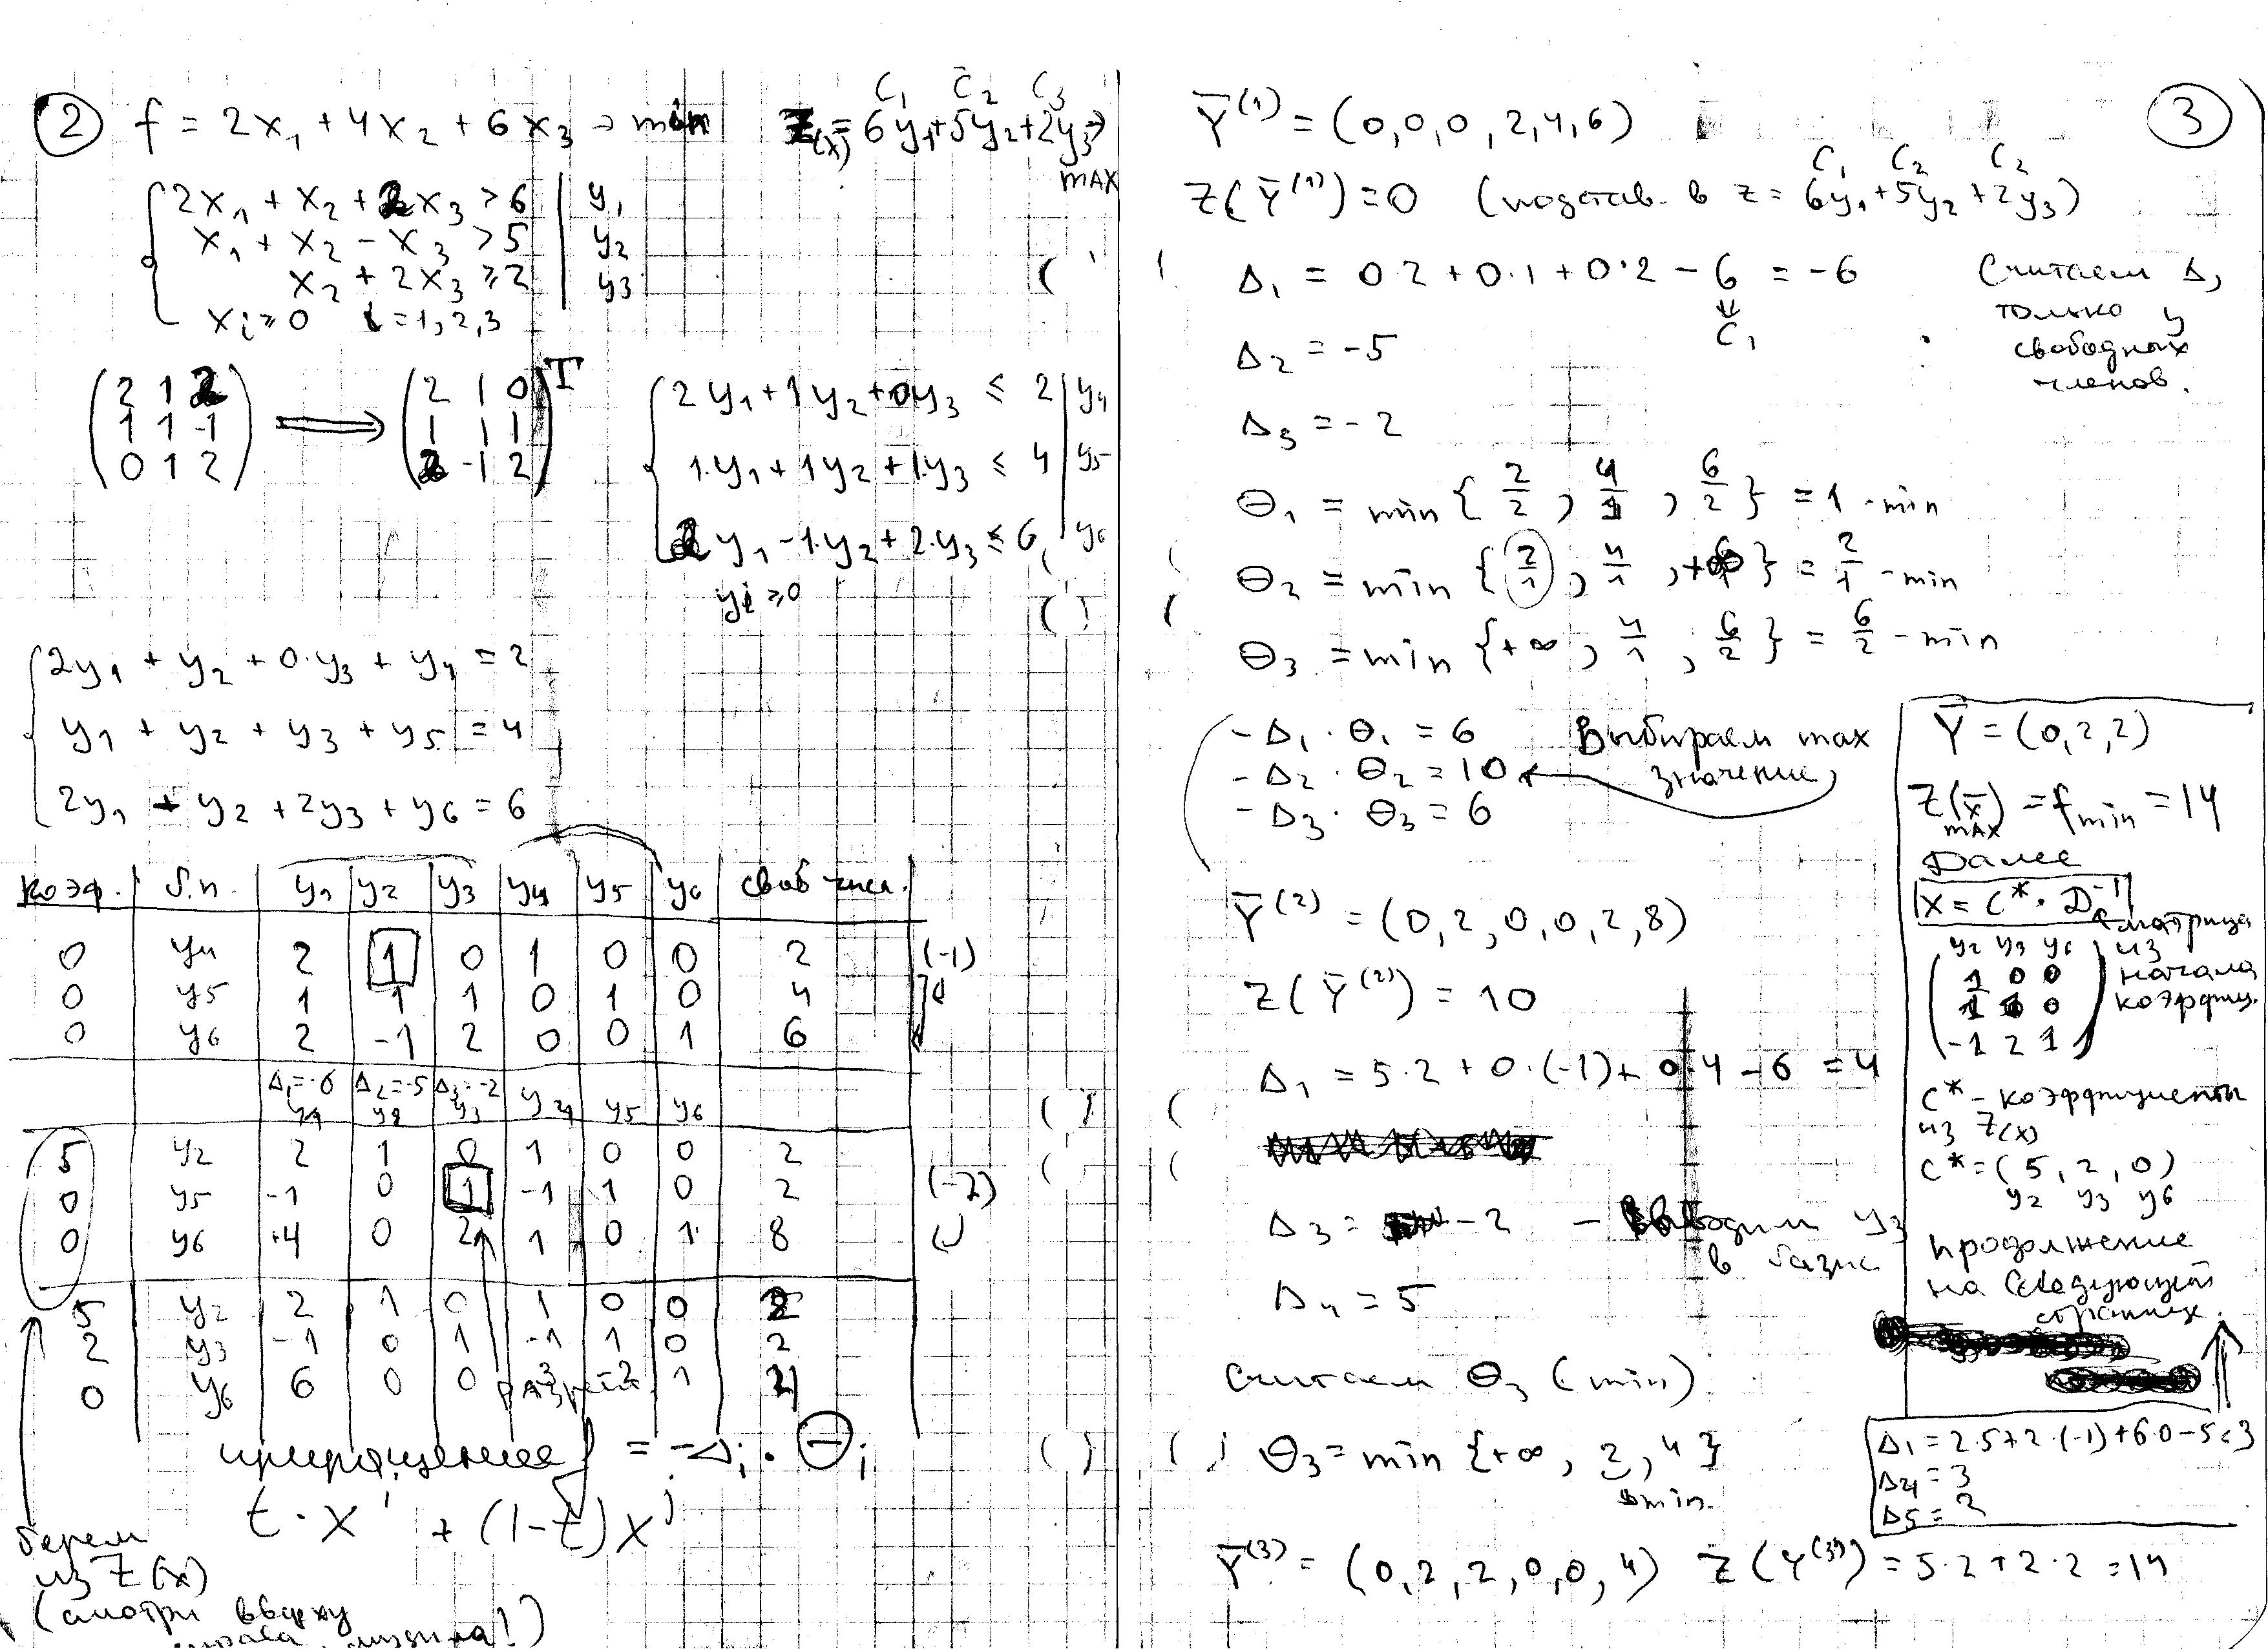 ② f = 2x₁ + 4x₂ + 6x₃ → min
C₁ C₂ C₃
Z(x) = 6y₁ + 5y₂ + 2y₃ → max
2x₁ + x₂ + 2x₃ > 6 | y₁
x₁ + x₂ - x₃ > 5 | y₂
x₂ + 2x₃ ≥ 2 | y₃
xᵢ ≥ 0 i = 1, 2, 3
(2 1 2) ⟹ (2 1 0)ᵀ
(1 1 -1) (1 1 1)
(0 1 2) (2 -1 2)
2y₁ + 1y₂ + 0y₃ ≤ 2 | y₄
1·y₁ + 1y₂ + 1·y₃ ≤ 4 | y₅
2y₁ - 1·y₂ + 2·y₃ ≤ 6, | y₆
yᵢ ≥ 0
2y₁ + y₂ + 0·y₃ + y₄ = 2
y₁ + y₂ + y₃ + y₅ = 4
2y₁ - y₂ + 2y₃ + y₆ = 6
коэф. | б.п. | y₁ | y₂ | y₃ | y₄ | y₅ | y₆ | своб числ.
0 y₄ 2 1 0 1 0 0 2 (-1)
0 y₅ 1 1 1 0 1 0 4
0 y₆ 2 -1 2 0 0 1 6
Δ₁=-6 Δ₂=-5 Δ₃=-2
y₁ y₂ y₃ y₄ y₅ y₆
5 y₂ 2 1 0 1 0 0 2
0 y₅ -1 0 1 -1 1 0 2 (-2)
0 y₆ +4 0 2 1 0 1 8
5 y₂ 2 1 0 1 0 0 2
2 y₃ -1 0 1 -1 1 0 2
0 y₆ 6 0 0 3 -2 1 4
приращение f = -Δⱼ · Θⱼ
t · x' + (1-t)x
берем
из Z(x)
(смотри вверху
③
Y̅⁽¹⁾ = (0, 0, 0, 2, 4, 6)
C₁ C₂ C₂
Z(Y̅⁽¹⁾) = 0 (подстав. в z = 6y₁ + 5y₂ + 2y₃)
Δ₁ = 0·2 + 0·1 + 0·2 - 6 = -6
C₁
Считаем Δ,
только у
свободных
членов.
Δ₂ = -5
Δ₃ = -2
Θ₁ = min {2/2, 4/1, 6/2} = 1 - min
Θ₂ = min {2/1, 4/1, +∞} = 2/1 - min
Θ₃ = min {+∞, 4/1, 6/2} = 6/2 - min
-Δ₁ · Θ₁ = 6
-Δ₂ · Θ₂ = 10
-Δ₃ · Θ₃ = 6
Выбираем max
значение
Y̅⁽²⁾ = (0, 2, 0, 0, 2, 8)
Z(Y̅⁽²⁾) = 10
Δ₁ = 5·2 + 0·(-1) + 0·4 - 6 = 4
Δ₃ = -2 - вводим y₃
в базис
Δ₄ = 5
Считаем Θ₃ (min)
Θ₃ = min {+∞, 2, 4}
min.
Y̅⁽³⁾ = (0, 2, 2, 0, 0, 4) Z(Y⁽³⁾) = 5·2 + 2·2 = 14
Y̅ = (0, 2, 2)
Z(x̅) = f min = 14
max
Далее
X = C* · D⁻¹
матрица
из
начала
коэффиц.
y₂ y₃ y₆
1 0 0
1 1 0
-1 2 1
C* - коэффициенты
из Z(x)
C* = (5, 2, 0)
y₂ y₃ y₆
продолжение
на следующей
странице.
Δ₁ = 2·5 + 2·(-1) + 6·0 - 5 = 3
Δ₄ = 3
Δ₅ = 2